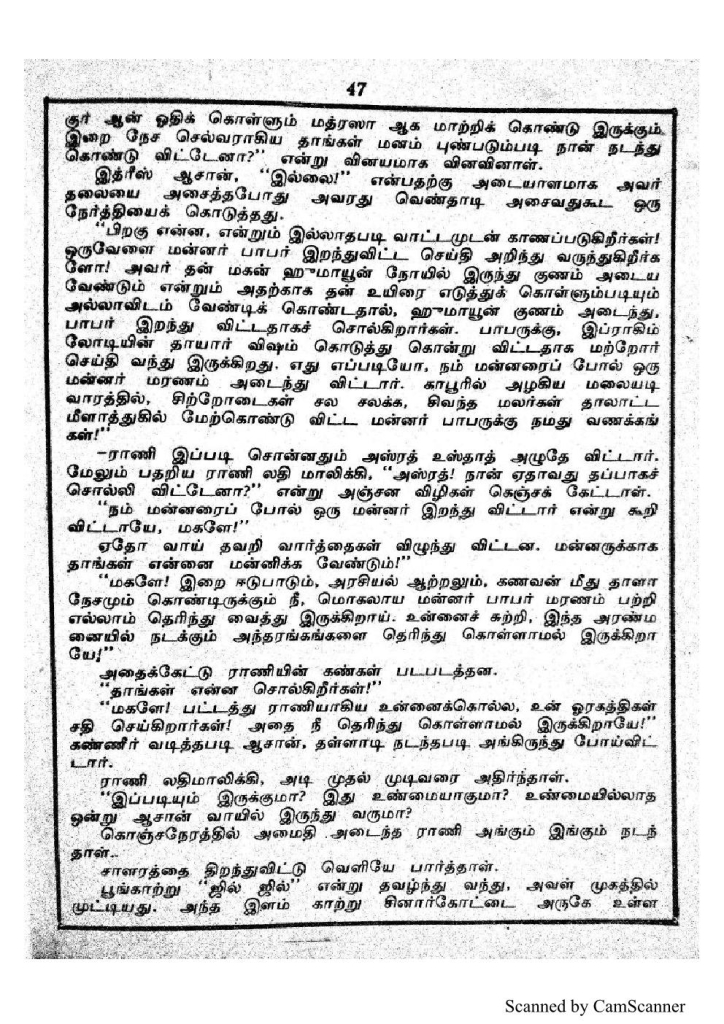 47
குர் ஆன் ஓதிக் கொள்ளும் மத்ரஸா ஆக மாற்றிக் கொண்டு இருக்கும்
இறை நேச செல்வராகிய தாங்கள் மனம் புண்படும்படி நான் நடந்து
கொண்டு விட்டேனா?” என்று வினயமாக வினவினாள்.
இத்ரீஸ் ஆசான், “இல்லை!” என்பதற்கு அடையாளமாக அவர்
தலையை அசைத்தபோது அவரது வெண்தாடி அசைவதுகூட ஒரு
நேர்த்தியைக் கொடுத்தது.
“பிறகு என்ன, என்றும் இல்லாதபடி வாட்டமுடன் காணப்படுகிறீர்கள்!
ஒருவேளை மன்னர் பாபர் இறந்துவிட்ட செய்தி அறிந்து வருந்துகிறீர்க
ளோ! அவர் தன் மகன் ஹுமாயூன் நோயில் இருந்து குணம் அடைய
வேண்டும் என்றும் அதற்காக தன் உயிரை எடுத்துக் கொள்ளும்படியும்
அல்லாவிடம் வேண்டிக் கொண்டதால், ஹுமாயூன் குணம் அடைந்து,
பாபர் இறந்து விட்டதாகச் சொல்கிறார்கள். பாபருக்கு, இப்ராகிம்
லோடியின் தாயார் விஷம் கொடுத்து கொன்று விட்டதாக மற்றோர்
செய்தி வந்து இருக்கிறது. எது எப்படியோ, நம் மன்னரைப் போல் ஒரு
மன்னர் மரணம் அடைந்து விட்டார். காபூரில் அழகிய மலையடி
வாரத்தில், சிற்றோடைகள் சல சலக்க, சிவந்த மலர்கள் தாலாட்ட
மீளாத்துகில் மேற்கொண்டு விட்ட மன்னர் பாபருக்கு நமது வணக்கங்
கள்!”
–ராணி இப்படி சொன்னதும் அஸ்ரத் உஸ்தாத் அழுதே விட்டார்.
மேலும் பதறிய ராணி லதி மாலிக்கி, “அஸ்ரத்! நான் ஏதாவது தப்பாகச்
சொல்லி விட்டேனா?” என்று அஞ்சன விழிகள் கெஞ்சக் கேட்டாள்.
“நம் மன்னரைப் போல் ஒரு மன்னர் இறந்து விட்டார் என்று கூறி
விட்டாயே, மகளே!”
ஏதோ வாய் தவறி வார்த்தைகள் விழுந்து விட்டன. மன்னருக்காக
தாங்கள் என்னை மன்னிக்க வேண்டும்!”
“மகளே! இறை ஈடுபாடும், அரசியல் ஆற்றலும், கணவன் மீது தாளா
நேசமும் கொண்டிருக்கும் நீ, மொகலாய மன்னர் பாபர் மரணம் பற்றி
எல்லாம் தெரிந்து வைத்து இருக்கிறாய். உன்னைச் சுற்றி, இந்த அரண்ம
னையில் நடக்கும் அந்தரங்கங்களை தெரிந்து கொள்ளாமல் இருக்கிறா
யே!”
அதைக்கேட்டு ராணியின் கண்கள் படபடத்தன.
“தாங்கள் என்ன சொல்கிறீர்கள்!”
“மகளே! பட்டத்து ராணியாகிய உன்னைக்கொல்ல, உன் ஓரகத்திகள்
சதி செய்கிறார்கள்! அதை நீ தெரிந்து கொள்ளாமல் இருக்கிறாயே!”
கண்ணீர் வடித்தபடி ஆசான், தள்ளாடி நடந்தபடி அங்கிருந்து போய்விட்
டார்.
ராணி லதிமாலிக்கி, அடி முதல் முடிவரை அதிர்ந்தாள்.
“இப்படியும் இருக்குமா? இது உண்மையாகுமா? உண்மையில்லாத
ஒன்று ஆசான் வாயில் இருந்து வருமா?
கொஞ்சநேரத்தில் அமைதி அடைந்த ராணி அங்கும் இங்கும் நடந்
தாள்.
சாளரத்தை திறந்துவிட்டு வெளியே பார்த்தாள்.
பூங்காற்று “ஜில் ஜில்” என்று தவழ்ந்து வந்து, அவள் முகத்தில்
முட்டியது. அந்த இளம் காற்று சினார்கோட்டை அருகே உள்ள
Scanned by CamScanner